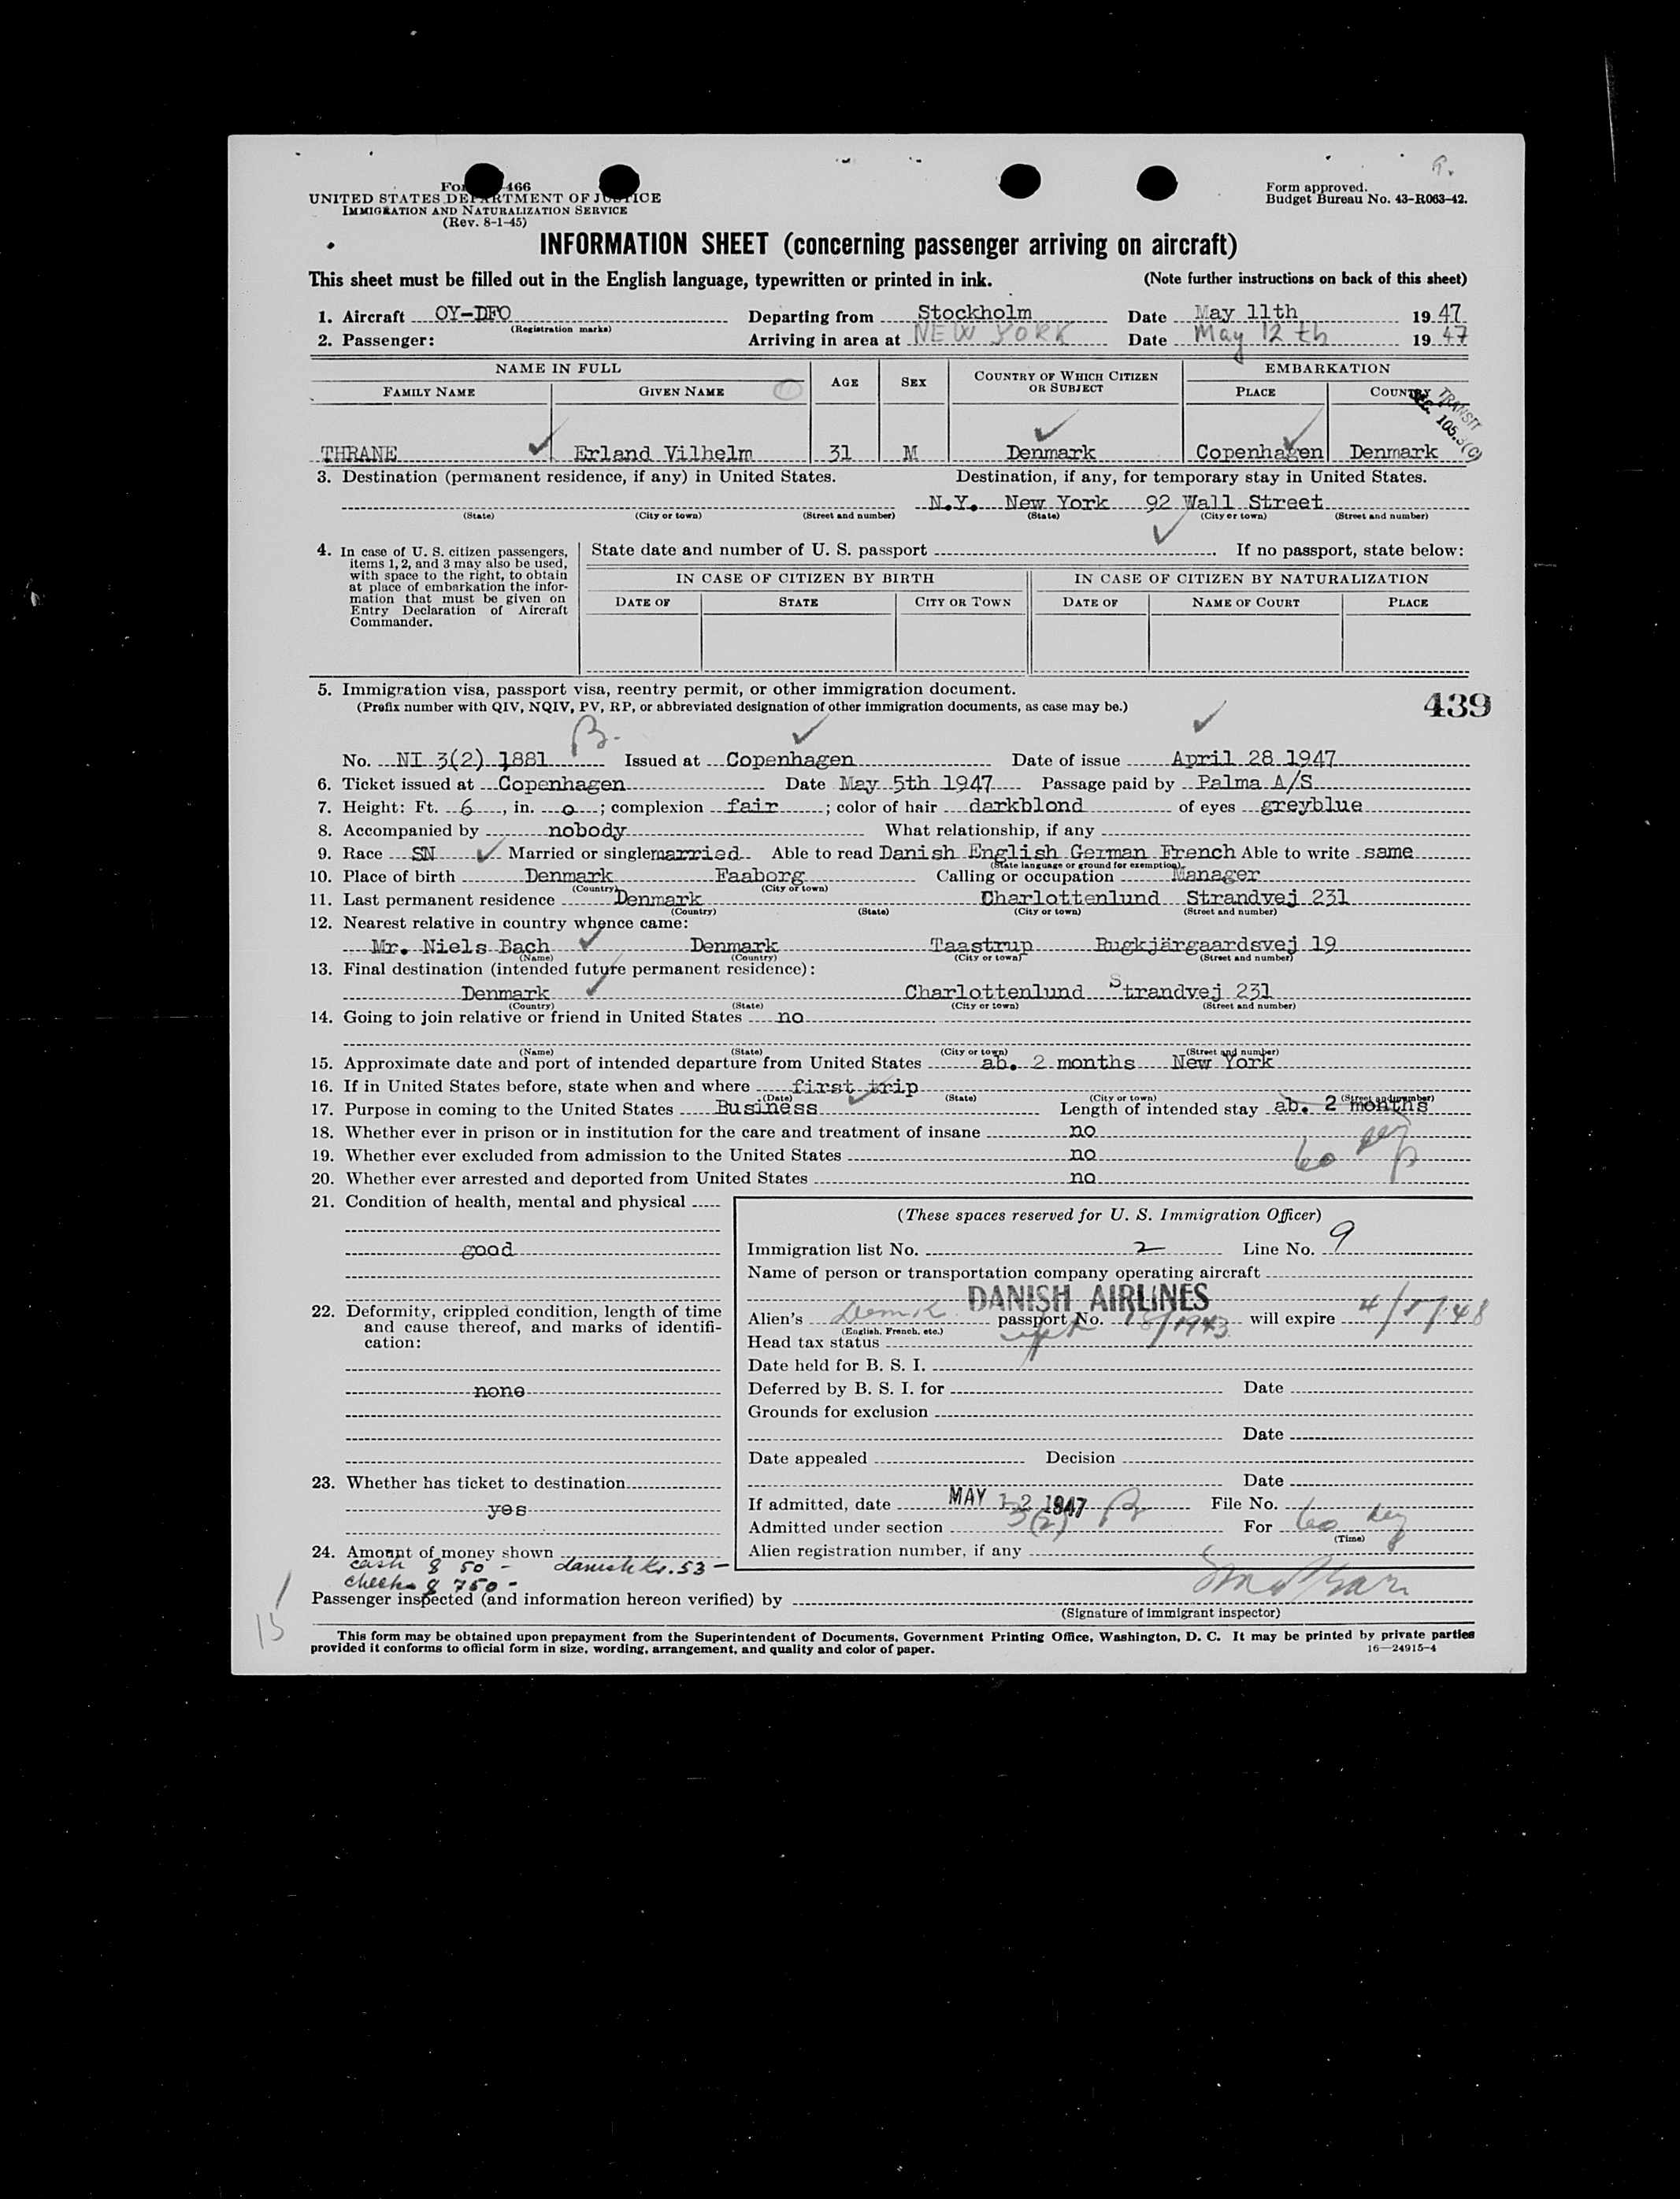 Form approved.
Budget Bureau No. 43-R063-42.
UNITED STATES DEPARTMENT OF JUSTICE
IMMIGRATION AND NATURALIZATION SERVICE
(Rev. 8-1-45)
INFORMATION SHEET (concerning passenger arriving on aircraft)
This sheet must be filled out in the English language, typewritten or printed in ink. (Note further instructions on back of this sheet)
1. Aircraft OY-DFO Departing from Stockholm Date May 11th 1947
(Registration marks)
2. Passenger: Arriving in area at NEW YORK Date May 12th 1947
NAME IN FULL AGE SEX COUNTRY OF WHICH CITIZEN OR SUBJECT EMBARKATION
FAMILY NAME GIVEN NAME PLACE COUNTRY
TRANSIT
105.3(C)
THRANE Erland Vilhelm 31 M Denmark Copenhagen Denmark
3. Destination (permanent residence, if any) in United States. Destination, if any, for temporary stay in United States.
N.Y. New York 92 Wall Street
(State) (City or town) (Street and number) (State) (City or town) (Street and number)
4. In case of U. S. citizen passengers, items 1, 2, and 3 may also be used, with space to the right, to obtain at place of embarkation the information that must be given on Entry Declaration of Aircraft Commander.
State date and number of U. S. passport . If no passport, state below:
IN CASE OF CITIZEN BY BIRTH IN CASE OF CITIZEN BY NATURALIZATION
DATE OF STATE CITY OR TOWN DATE OF NAME OF COURT PLACE
5. Immigration visa, passport visa, reentry permit, or other immigration document.
(Prefix number with QIV, NQIV, PV, RP, or abbreviated designation of other immigration documents, as case may be.)
439
No. NI 3(2) 1881 Issued at Copenhagen Date of issue April 28 1947
6. Ticket issued at Copenhagen Date May 5th 1947 Passage paid by Palma A/S
7. Height: Ft. 6, in. o; complexion fair; color of hair darkblond of eyes greyblue
8. Accompanied by nobody What relationship, if any
9. Race SN Married or single married Able to read Danish English German French Able to write same
(State language or ground for exemption)
10. Place of birth Denmark Faaborg Calling or occupation Manager
(Country) (City or town)
11. Last permanent residence Denmark Charlottenlund Strandvej 231
(Country) (State) (City or town) (Street and number)
12. Nearest relative in country whence came:
Mr. Niels Bach Denmark Taastrup Rugkjärgaardsvej 19
(Name) (Country) (City or town) (Street and number)
13. Final destination (intended future permanent residence):
Denmark Charlottenlund Strandvej 231
(Country) (State) (City or town) (Street and number)
14. Going to join relative or friend in United States no
(Name) (State) (City or town) (Street and number)
15. Approximate date and port of intended departure from United States ab. 2 months New York
16. If in United States before, state when and where first trip
(Date) (State) (City or town) (Street and number)
17. Purpose in coming to the United States Business Length of intended stay ab. 2 months
18. Whether ever in prison or in institution for the care and treatment of insane no
19. Whether ever excluded from admission to the United States no
60
20. Whether ever arrested and deported from United States no
21. Condition of health, mental and physical
good
22. Deformity, crippled condition, length of time and cause thereof, and marks of identification:
none
23. Whether has ticket to destination
yes
24. Amount of money shown
cash $ 50 - danish kr. 53 -
checks $ 750 -
(These spaces reserved for U. S. Immigration Officer)
Immigration list No. 2 Line No. 9
Name of person or transportation company operating aircraft
DANISH AIRLINES
Alien's passport No. 18/1943 will expire 4/5/48
(English, French, etc.)
Head tax status
Date held for B. S. I.
Deferred by B. S. I. for Date
Grounds for exclusion
Date
Date appealed Decision
Date
If admitted, date MAY 12 1947 File No.
Admitted under section 3(2) For 60
(Time)
Alien registration number, if any
Passenger inspected (and information hereon verified) by
(Signature of immigrant inspector)
This form may be obtained upon prepayment from the Superintendent of Documents, Government Printing Office, Washington, D. C. It may be printed by private parties
provided it conforms to official form in size, wording, arrangement, and quality and color of paper. 16—24915-4